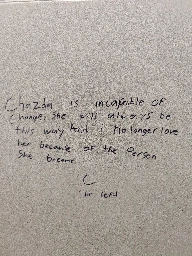 is incapable of
change, she will always be
this way and i no longer love
her because of the person
she became
C